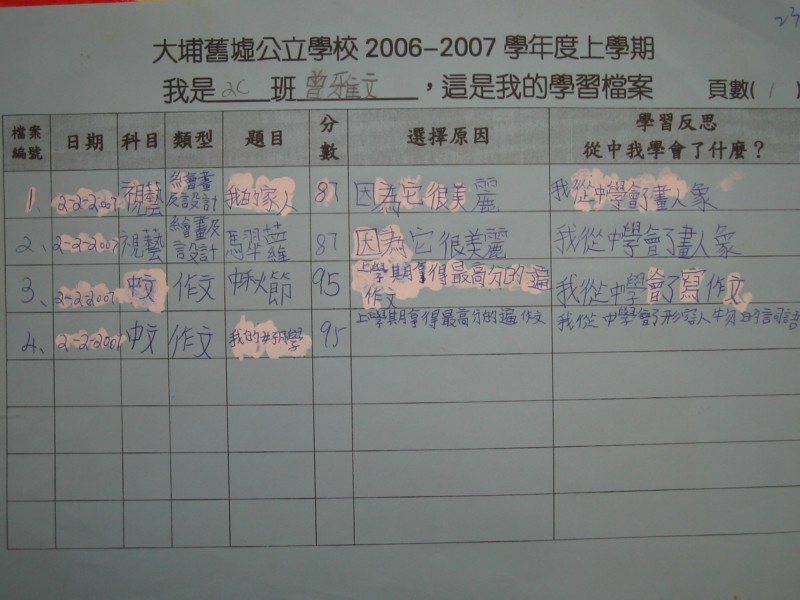 23
大埔舊墟公立學校 2006-2007 學年度上學期
我是 2C 班 曾雅文，這是我的學習檔案 頁數( 1 )
檔案編號 日期 科目 類型 題目 分數 選擇原因 學習反思 從中我學會了什麼？
1. 2-2-2007 視藝 繪畫及設計 我的家人 87 因為它很美麗 我從中學會了畫人象
2、 2-2-2007 視藝 繪畫及設計 87 因為它很美麗 我從中學會了畫人象
3、 2-2-2007 中文 作文 中秋節 95 上學期拿得最高分的一遍作文 我從中學會了寫作文
4、 2-2-2007 中文 作文 我的同學 95 上學期拿得最高分的一遍作文 我從中學會了形容人物的詞語